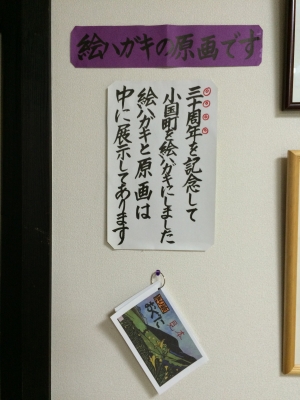 絵ハガキの原画です
三十周年を記念して
小国町を絵ハガキにしました
絵ハガキと原画は
中に展示してあります